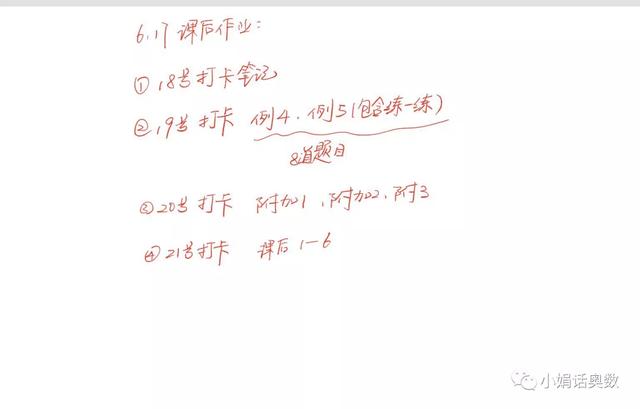 6.17 课后作业：
① 18号打卡笔记
② 19号打卡 例4、例5（包含练一练）
8道题目
③ 20号打卡 附加1、附加2、附3
④ 21号打卡 课后1-6
小娟话奥数